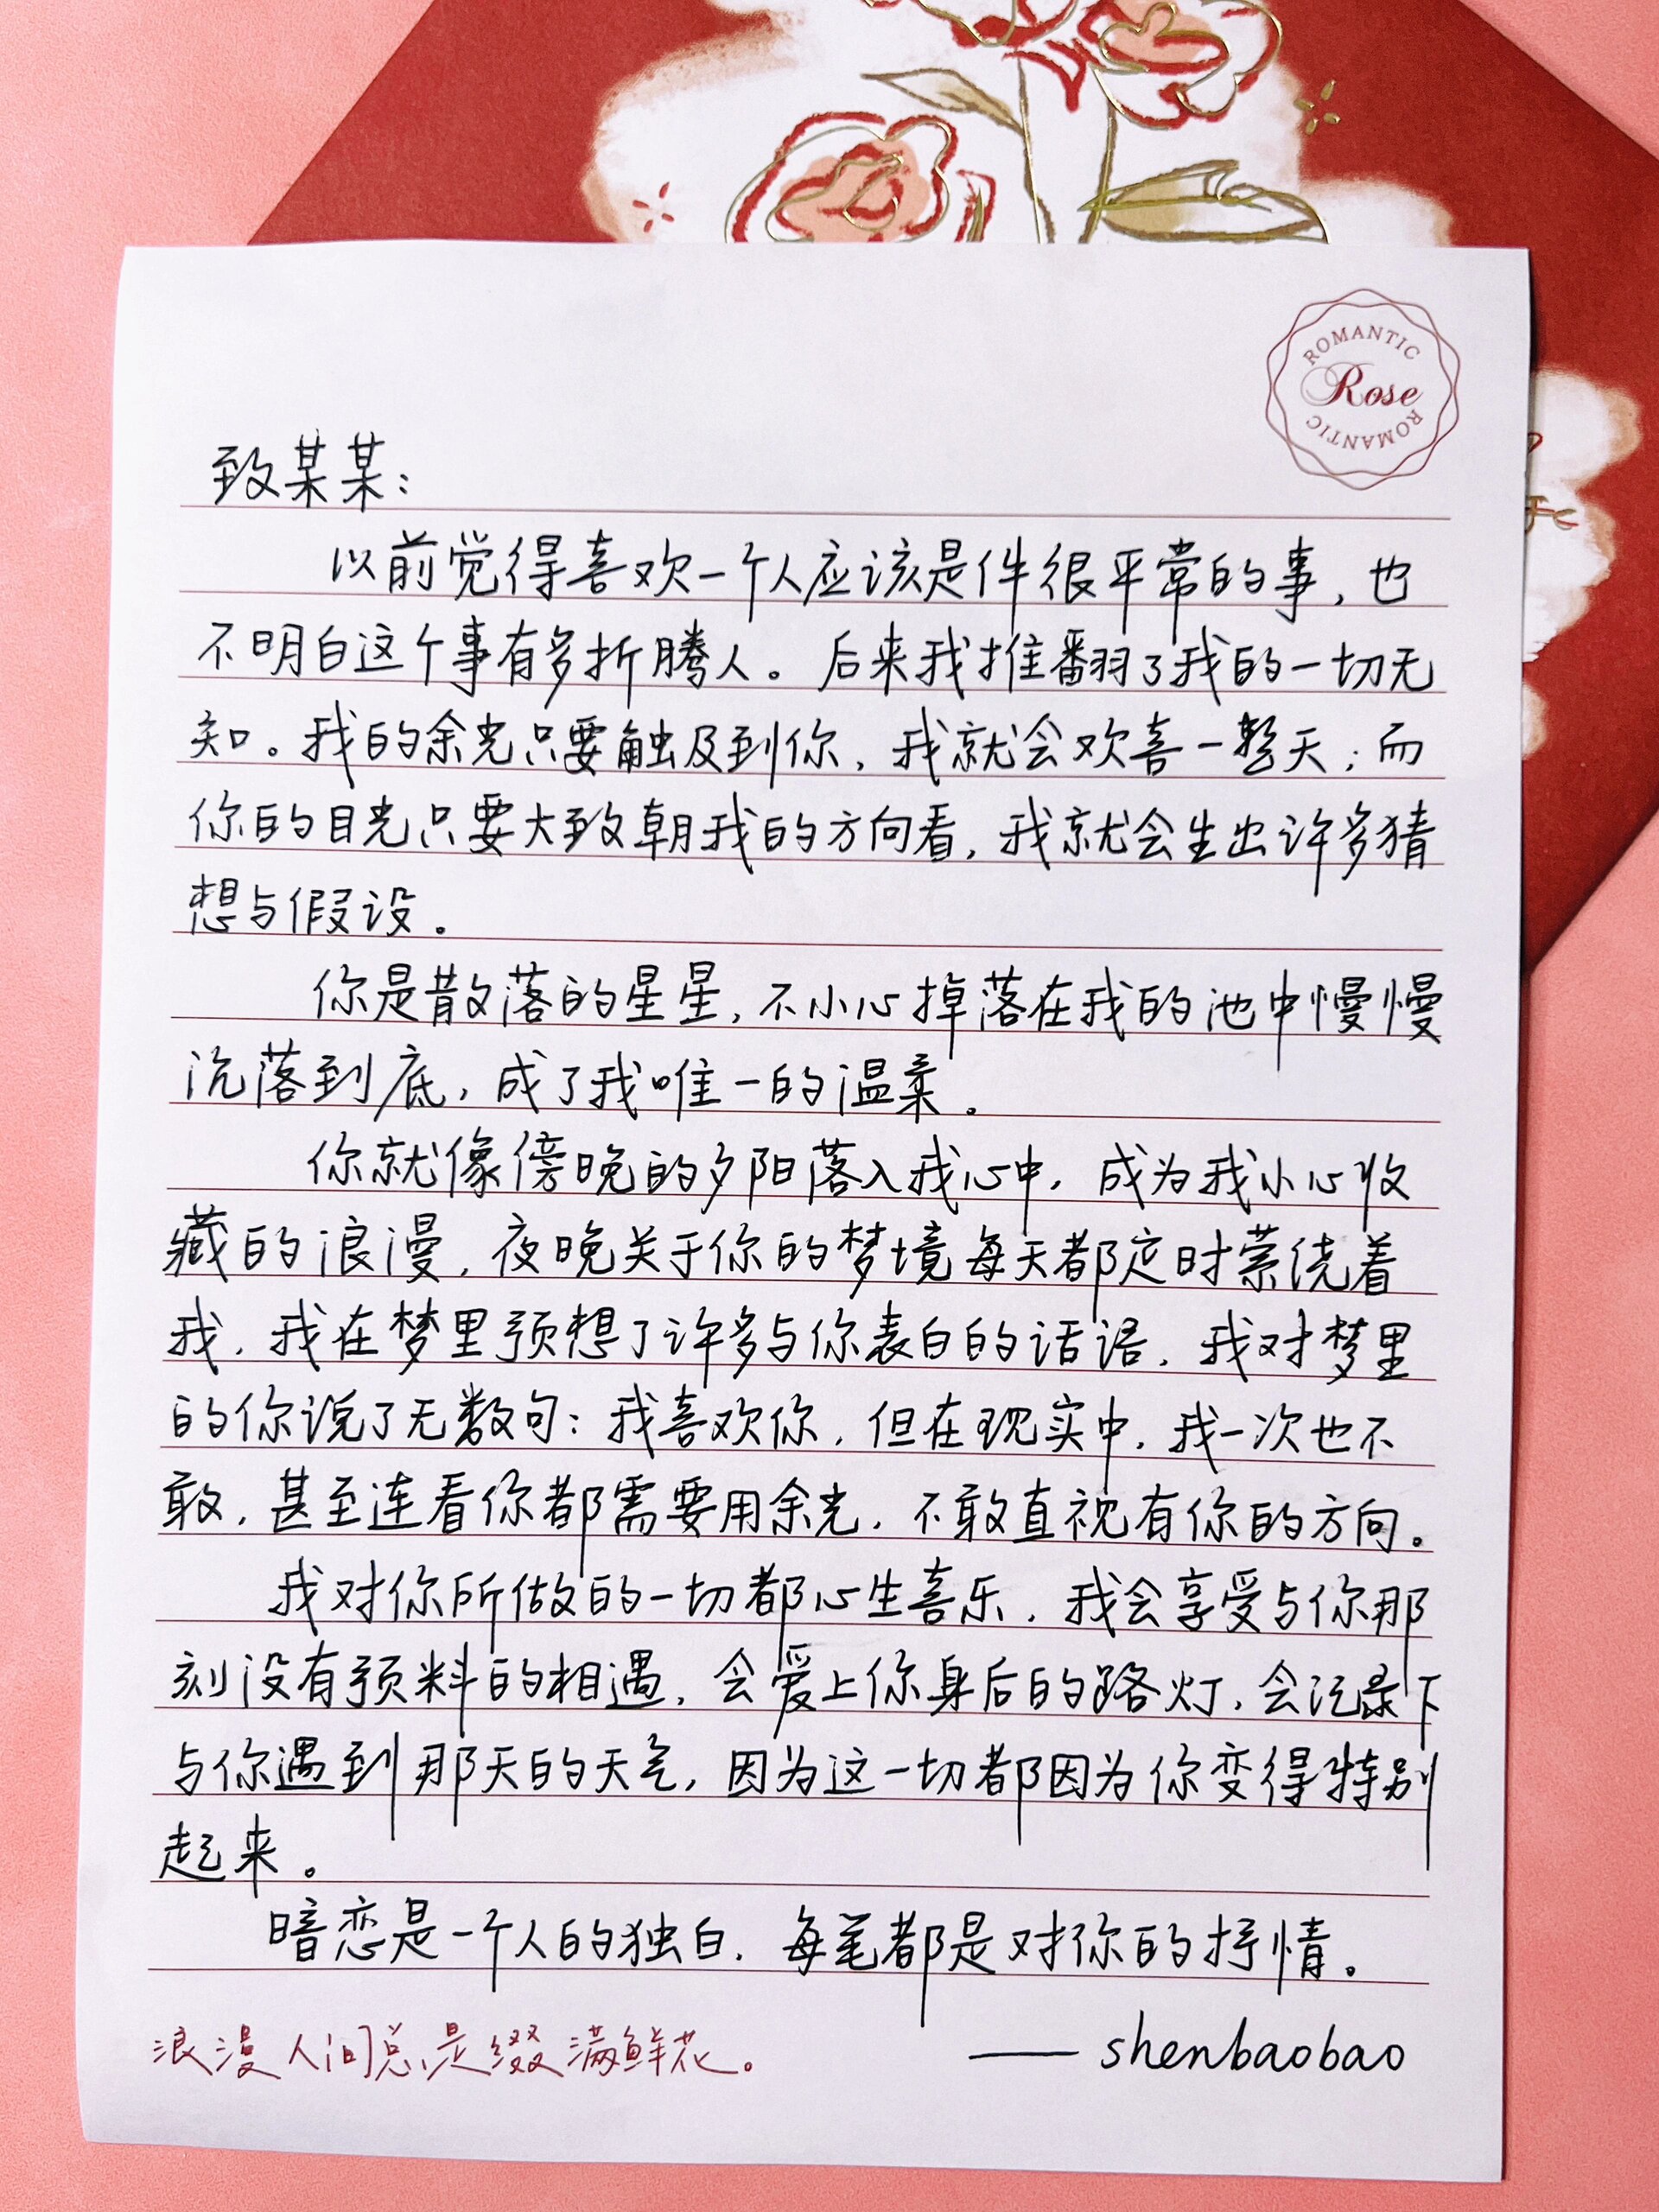 ROMANTIC
Rose
ROMANTIC
致某某：
以前觉得喜欢一个人应该是件很平常的事，也
不明白这个事有多折腾人。后来我推翻了我的一切无
知。我的余光只要触及到你，我就会欢喜一整天；而
你的目光只要大致朝我的方向看，我就会生出许多猜
想与假设。
你是散落的星星，不小心掉落在我的池中慢慢
沉落到底，成了我唯一的温柔。
你就像傍晚的夕阳落入我心中，成为我小心收
藏的浪漫，夜晚关于你的梦境每天都定时萦绕着
我，我在梦里预想了许多与你表白的话语，我对梦里
的你说了无数句：我喜欢你，但在现实中，我一次也不
敢，甚至连看你都需要用余光，不敢直视有你的方向。
我对你所做的一切都心生喜乐，我会享受与你那
刻没有预料的相遇，会爱上你身后的路灯，会记录下
与你遇到那天的天气，因为这一切都因为你变得特别
起来。
暗恋是一个人的独白，每笔都是对你的抒情。
浪漫人间总是缀满鲜花。
—— shenbaobao